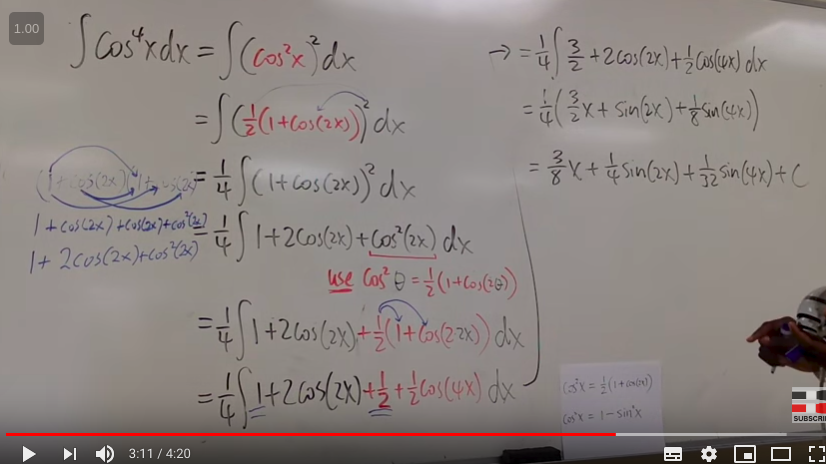 1.00
∫cos⁴x dx = ∫(cos²x)² dx
= ∫(½(1+cos(2x)))² dx
= ¼∫(1+cos(2x))² dx
(1+cos(2x))(1+cos(2x))
1+cos(2x)+cos(2x)+cos²(2x)
1+2cos(2x)+cos²(2x)
= ¼∫1+2cos(2x)+cos²(2x) dx
use cos²θ=½(1+cos(2θ))
= ¼∫1+2cos(2x)+½(1+cos(2·2x)) dx
= ¼∫1+2cos(2x)+½+½cos(4x) dx
→ = ¼∫3/2+2cos(2x)+½cos(4x) dx
= ¼(3/2x+sin(2x)+⅛sin(4x))
= 3/8x+¼sin(2x)+1/32sin(4x)+C
cos²x=½(1+cos(2x))
cos²x=1−sin²x
SUBSCRI
3:11 / 4:20